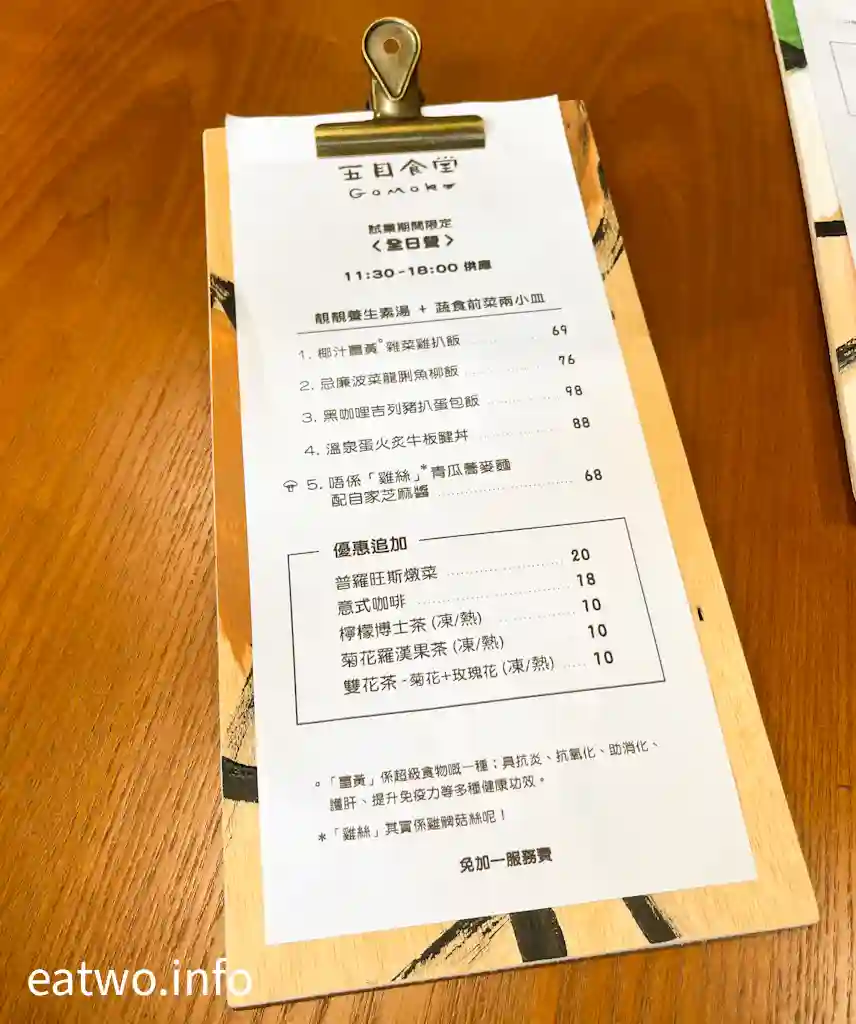 五目食堂
Gomoku
試業期間限定
〈全日餐〉
11:30-18:00 供應
靚靚養生素湯 + 蔬食前菜兩小皿
1. 椰汁薑黃°雜菜雞扒飯 69
2. 忌廉波菜龍脷魚柳飯 76
3. 黑咖哩吉列豬扒蛋包飯 98
4. 溫泉蛋火炙牛板腱丼 88
5. 唔係「雞絲」*青瓜蕎麥麵
配自家芝麻醬 68
優惠追加
普羅旺斯燉菜 20
意式咖啡 18
檸檬博士茶 (凍/熱) 10
菊花羅漢果茶 (凍/熱) 10
雙花茶 - 菊花+玫瑰花 (凍/熱) 10
。「薑黃」係超級食物嘅一種；具抗炎、抗氧化、助消化、
護肝、提升免疫力等多種健康功效。
*「雞絲」其實係雞髀菇絲呢！
免加一服務費
eatwo.info